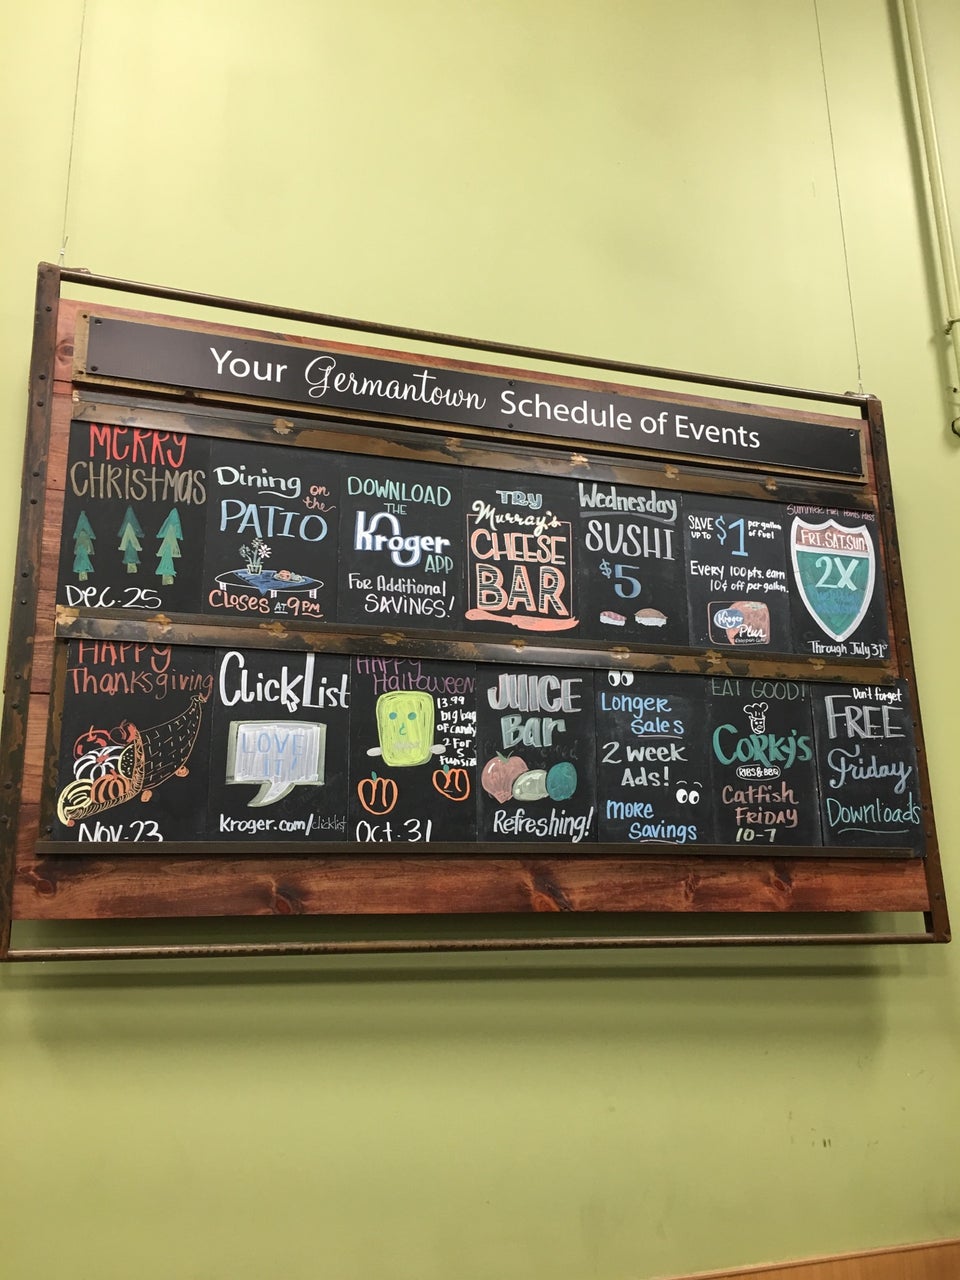 Your Germantown Schedule of Events
MERRY
CHRISTMAS
DEC. 25
Dining on
the
PATIO
CLOSES AT 9 PM
DOWNLOAD
THE
Kroger
APP
FOR Additional
SAVINGS!
TRY
Murray's
CHEESE
BAR
Wednesday
SUSHI
$5
SAVE
UP TO
$1
per gallon
of fuel
Every 100 pts. earn
10¢ off per gallon.
Kroger
Plus
Summer Fuel Points
FRI. SAT. SUN
2X
Through July 31st
HAPPY
Thanksgiving
Nov. 23
ClickList
LOVE
IT!
Kroger.com/clicklist
HAPPY
Halloween
13.99
big bag
of candy
2 For
5
Oct. 31
JUICE
Bar
Refreshing!
Longer
Sales
2 week
Ads!
MORE
Savings
EAT GOOD!
CORKY'S
RIBS & BBQ
Catfish
FRIDAY
10-7
Don't forget
FREE
Friday
Downloads